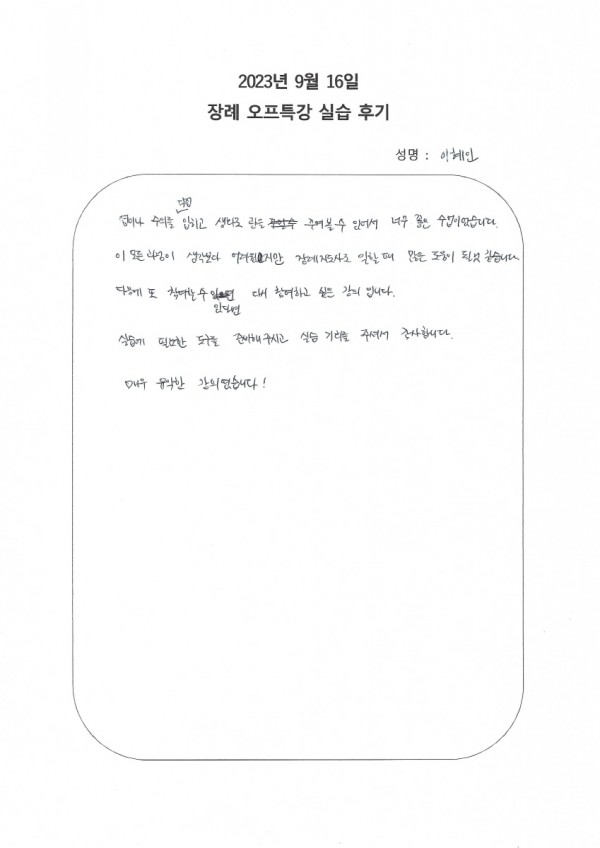 2023년 9월 16일
장례 오프특강 실습 후기
성명 : 이혜인
직접
염이나 수의를 입히고 생화로 관을 꾸며볼 수 있어서 너무 좋은 수업이었습니다.
이 모든 과정이 생각보다 어려웠지만 장례지도사로 일할 때 많은 도움이 될것 같습니다.
다음에 또 참여할 수 있다면 다시 참여하고 싶은 강의 입니다.
실습에 필요한 도구를 준비해주시고 실습 기회를 주셔서 감사합니다.
매우 유익한 강의였습니다!